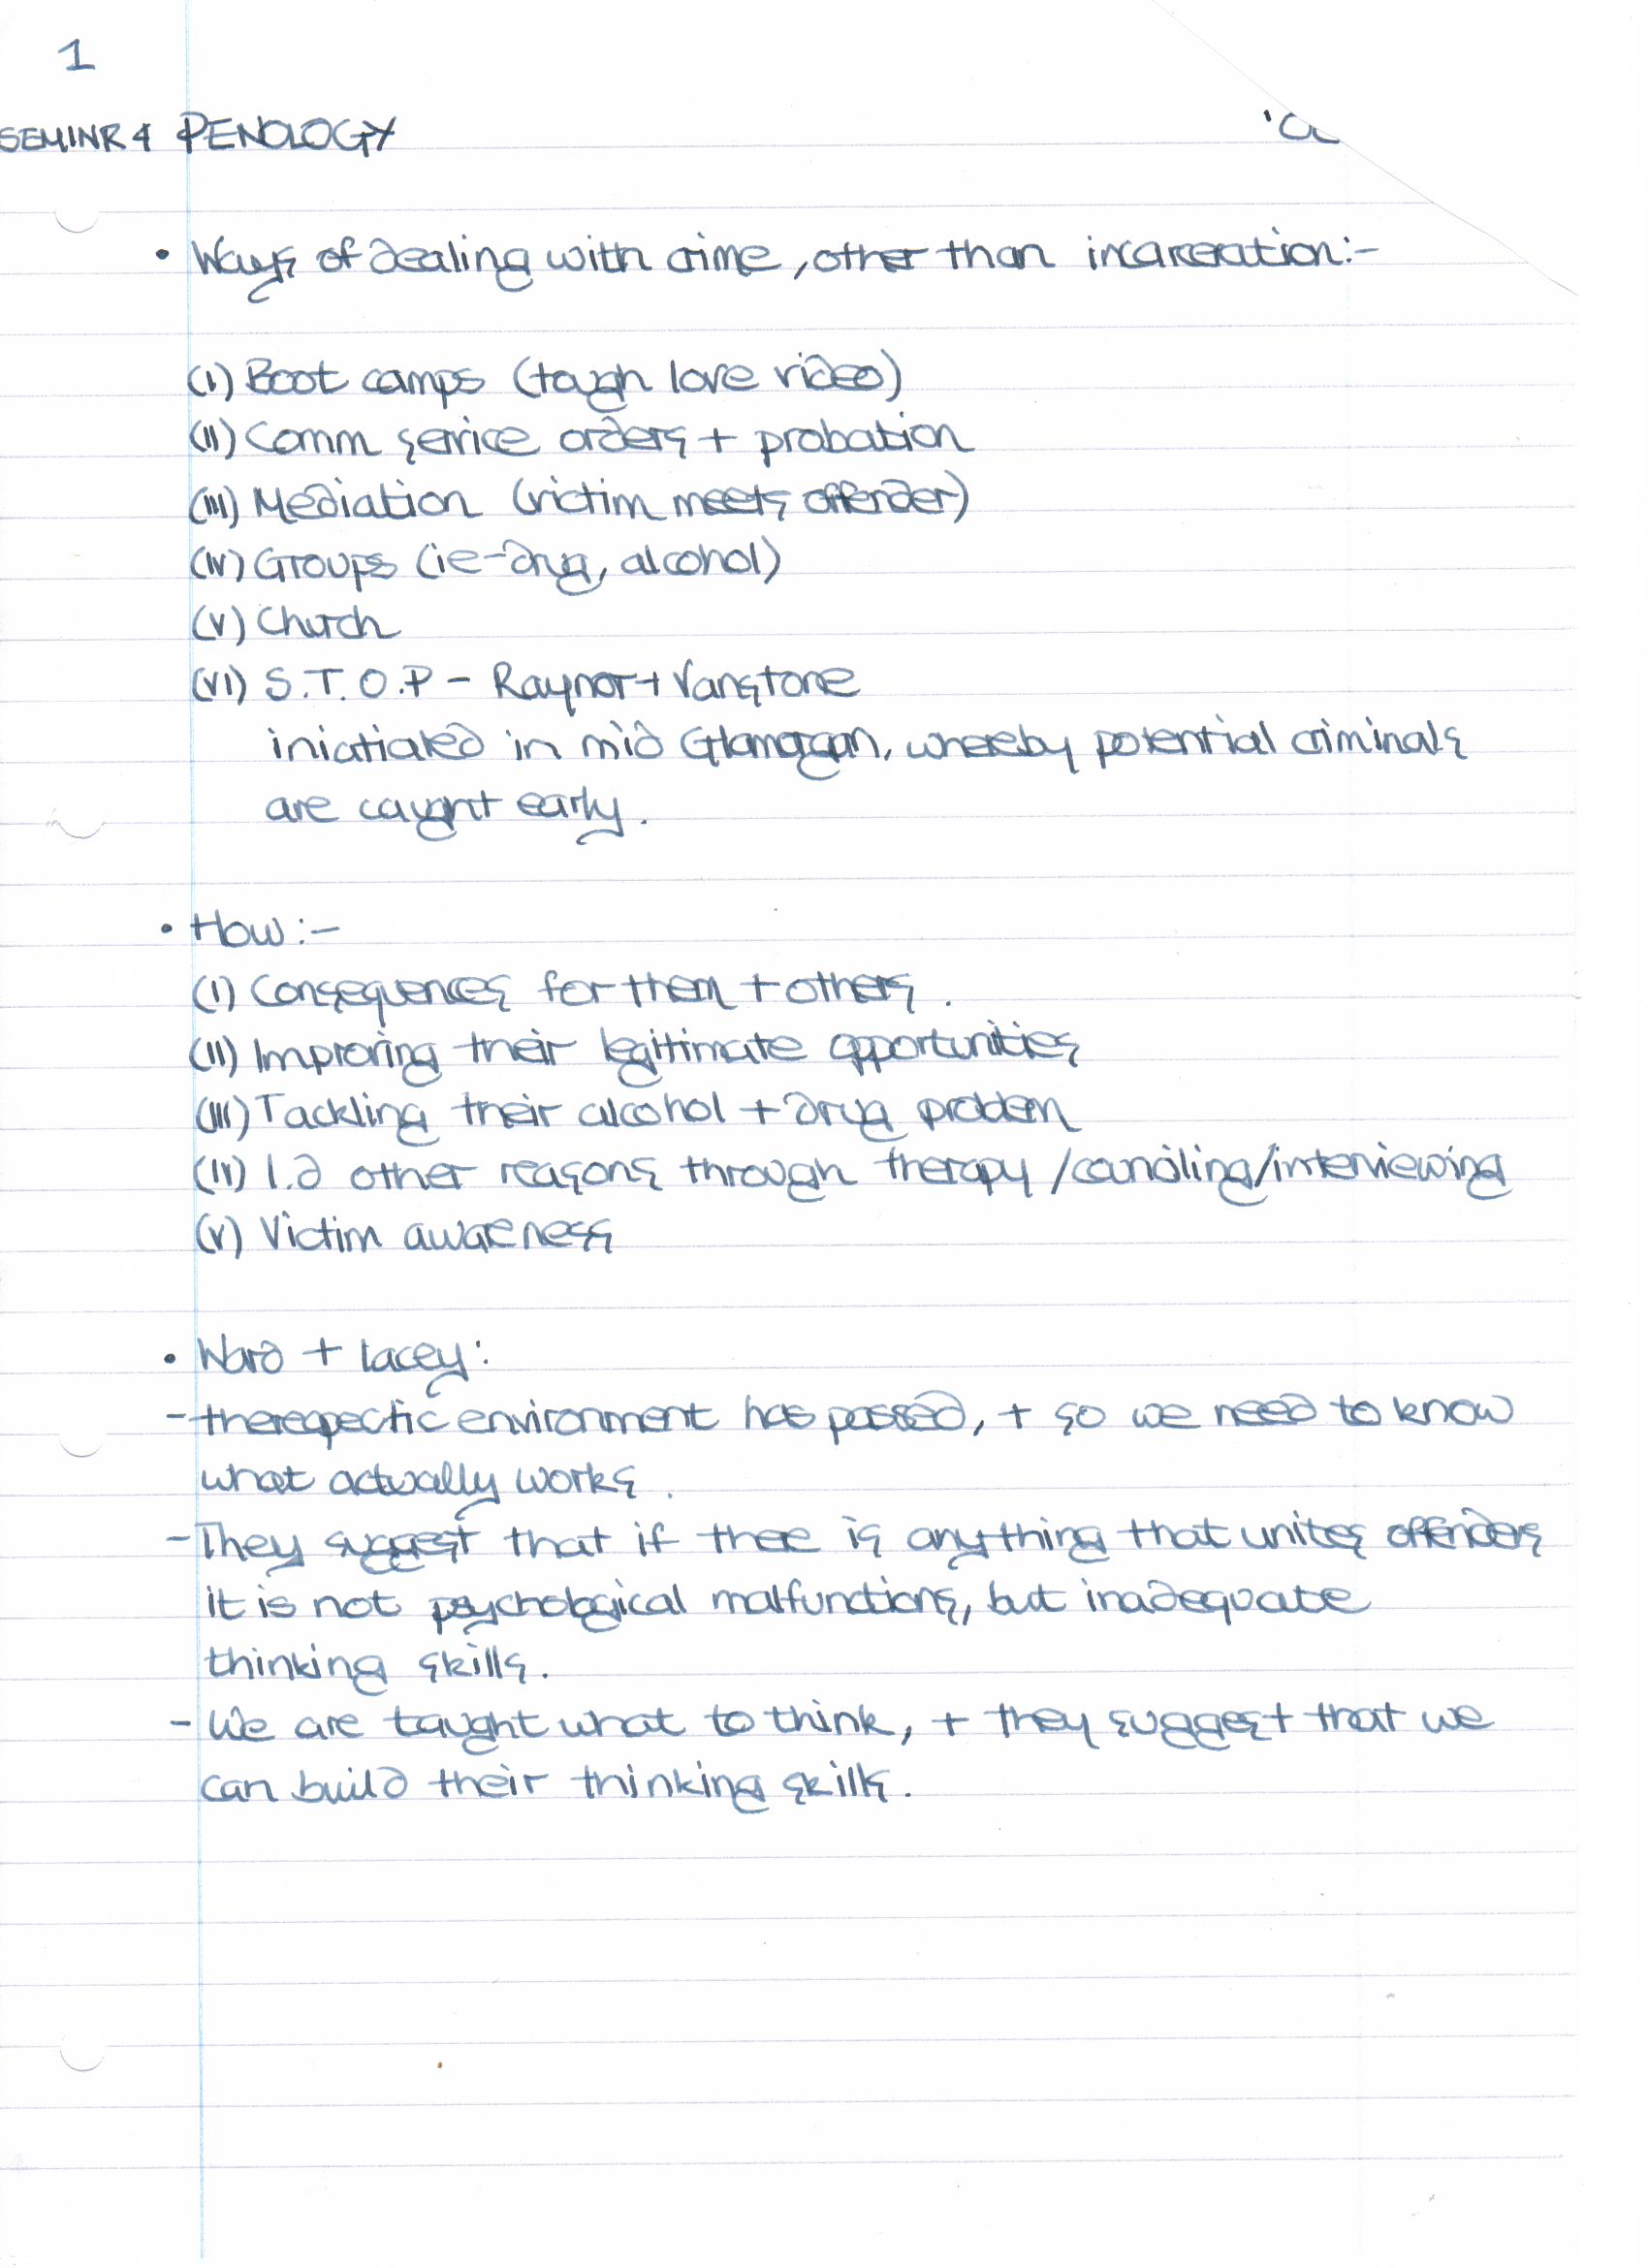 1
SEMINR 4 PENOLOGY
• Ways of dealing with crime, other than incarceration:-
(I) Boot camps (tough love video)
(II) Comm service orders + probation
(III) Mediation (victim meets offender)
(IV) Groups (ie-drug, alcohol)
(V) Church
(VI) S.T.O.P - Raynor + Vanstone
iniatiated in mid Glamagan, whereby potential criminals
are caught early.
• How:-
(I) Consequences for them + others.
(II) Improving their legitimate opportunities
(III) Tackling their alcohol + drug problem
(IV) I.d other reasons through therapy/counciling/interviewing
(V) Victim awareness
• Ward + Lacey:
- therepectic environment has passed, + so we need to know
what actually works.
- They suggest that if there is anything that unites offenders
it is not psychological malfunctions, but inadequate
thinking skills.
- We are taught what to think, + they suggest that we
can build their thinking skills.